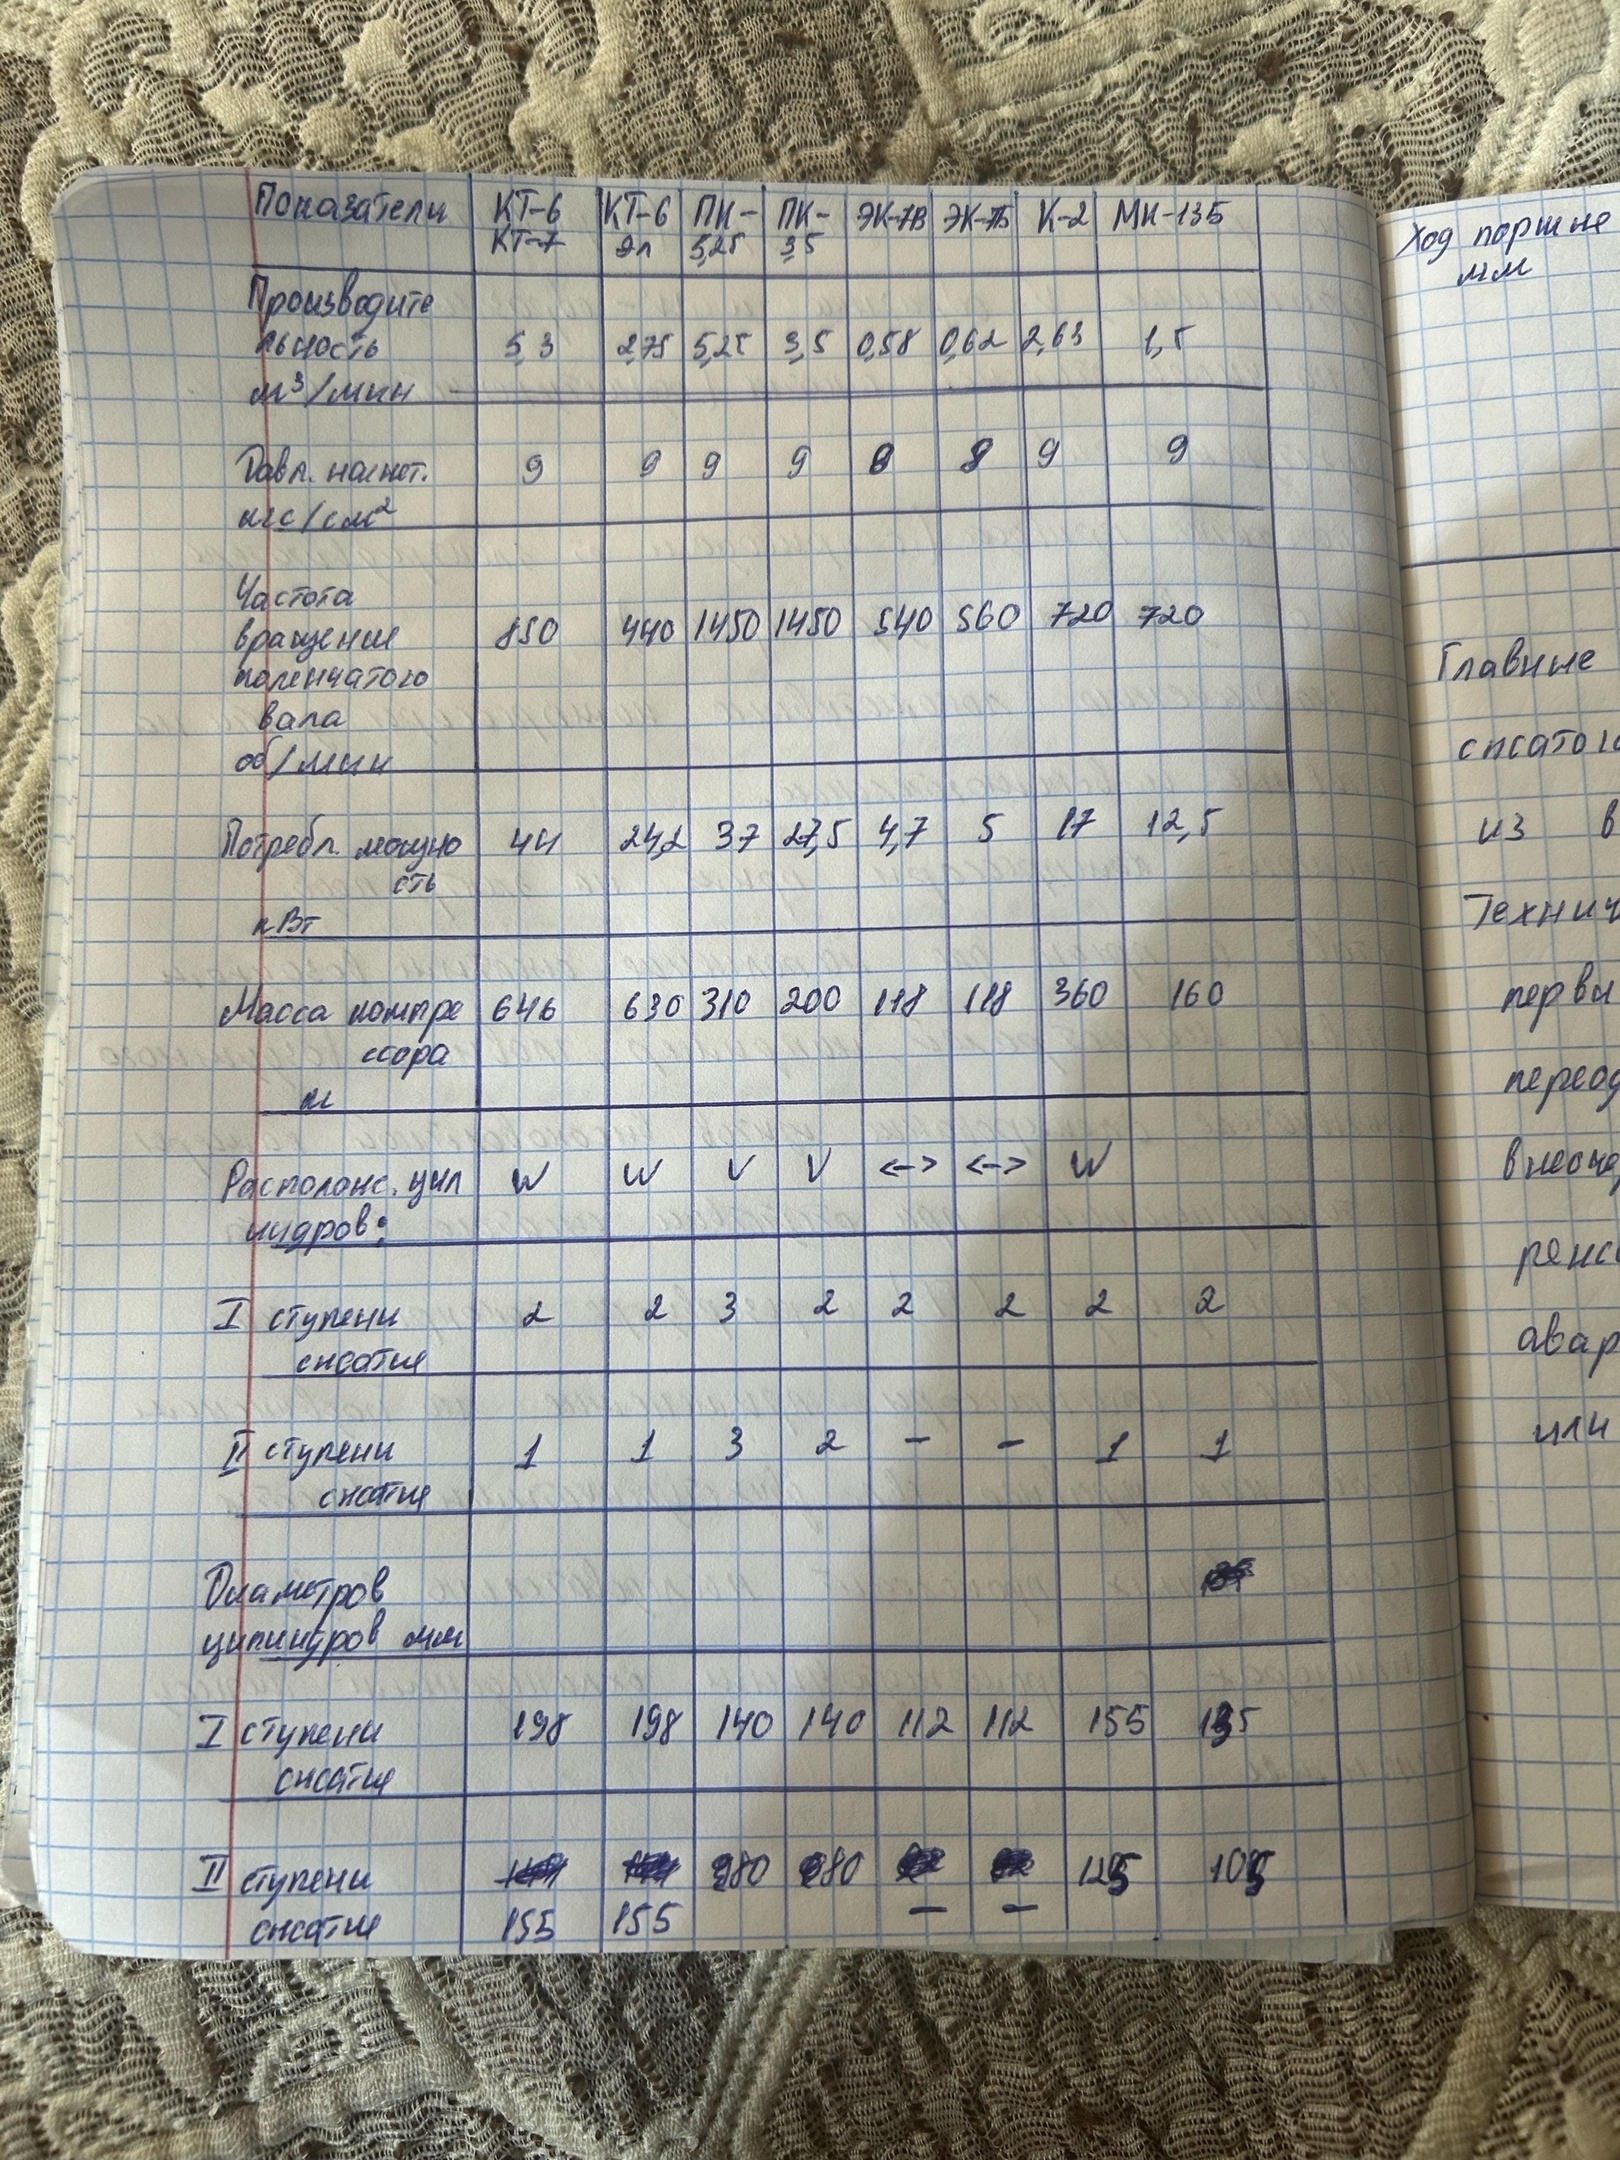 Показатели КТ-6 КТ-6 ПК- ПК- ЭК-7В ЭК-7Б К-2 МК-135
КТ-7 Эл 5,25 3,5
Производите
льность 5,3 2,75 5,25 3,5 0,58 0,62 2,63 1,5
м³/мин
Давл. нагнет. 9 9 9 9 8 8 9 9
кгс/см²
Частота
вращение 850 440 1450 1450 540 560 720 720
коленчатого
вала
об/мин
Потребл. мощно 44 24,2 37 27,5 4,7 5 17 12,5
сть
кВт
Масса компре 646 630 310 200 118 118 360 160
ссора
кг
Располож. цил W W V V <-> <-> W
индров:
I ступени 2 2 3 2 2 2 2 2
сжатие
II ступени 1 1 3 2 – – 1 1
сжатие
Диаметров
цилиндров мм
I ступени 198 198 140 140 112 112 155 135
сжатие
II ступени 125 105
сжатие 155 155 – –
Ход поршне
мм
Главные
сжатого
из в
Технич
первы
период
внеоч
авар
или